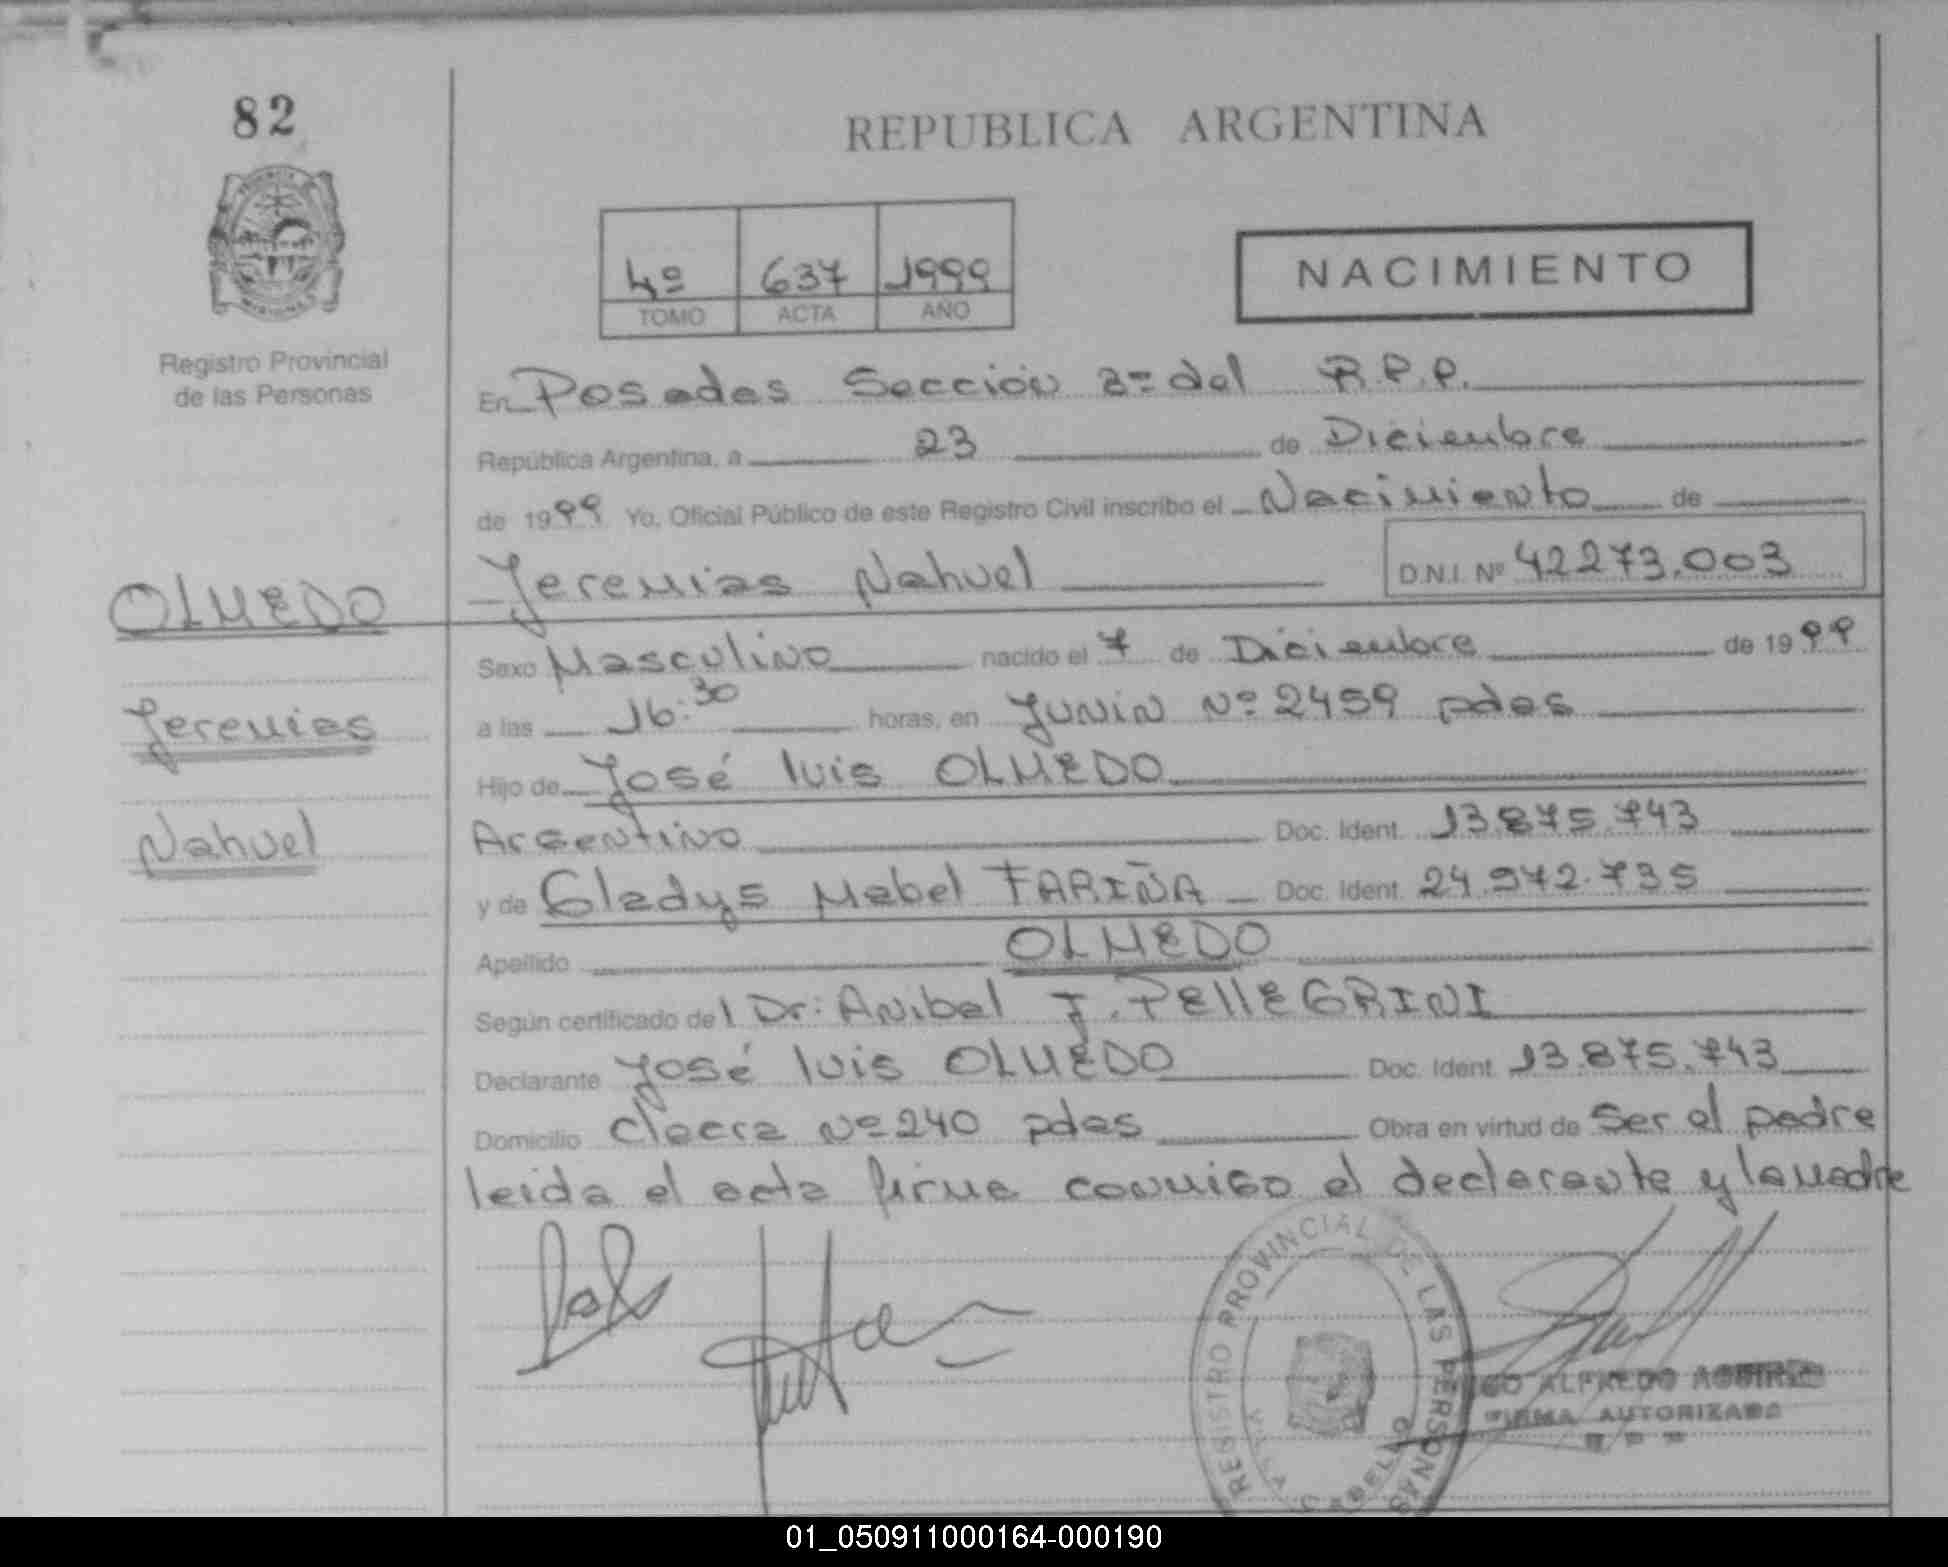 82
REPUBLICA ARGENTINA
4º 637 1999
TOMO ACTA AÑO
NACIMIENTO
Registro Provincial
de las Personas
En Posadas Sección 2º del R.P.P.
República Argentina, a 23 de Diciembre
de 1999 Yo, Oficial Público de este Registro Civil inscribo el Nacimiento de
Jeremias Nahuel D.N.I. Nº 42273.003
OLMEDO
Jeremias
Nahuel
Sexo Masculino nacido el 7 de Diciembre de 1999
a las 16:30 horas, en Junin Nº 2459 pdas
Hijo de José luis OLMEDO
Argentino Doc. Ident. 13.875.743
y de Gladys Mabel FARIÑA Doc. Ident. 24.972.735
Apellido OLMEDO
Según certificado del Dr: Anibal J. PEllEGRINI
Declarante José luis OLMEDO Doc. Ident. 13.875.743
Domicilio Nº 240 pdas Obra en virtud de Ser el padre
leida el acta firma conmigo el declarante y la madre
REGISTRO PROVINCIAL DE LAS PERSONAS
ALFREDO
FIRMA AUTORIZADA
01_050911000164-000190